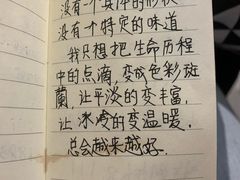 没有一个具体的形状
没有一个特定的味道
我只想把生命历程
中的点滴,变成色彩斑
蘭,让平淡的变丰富,
让冰冷的变温暖.
总会越来越好.